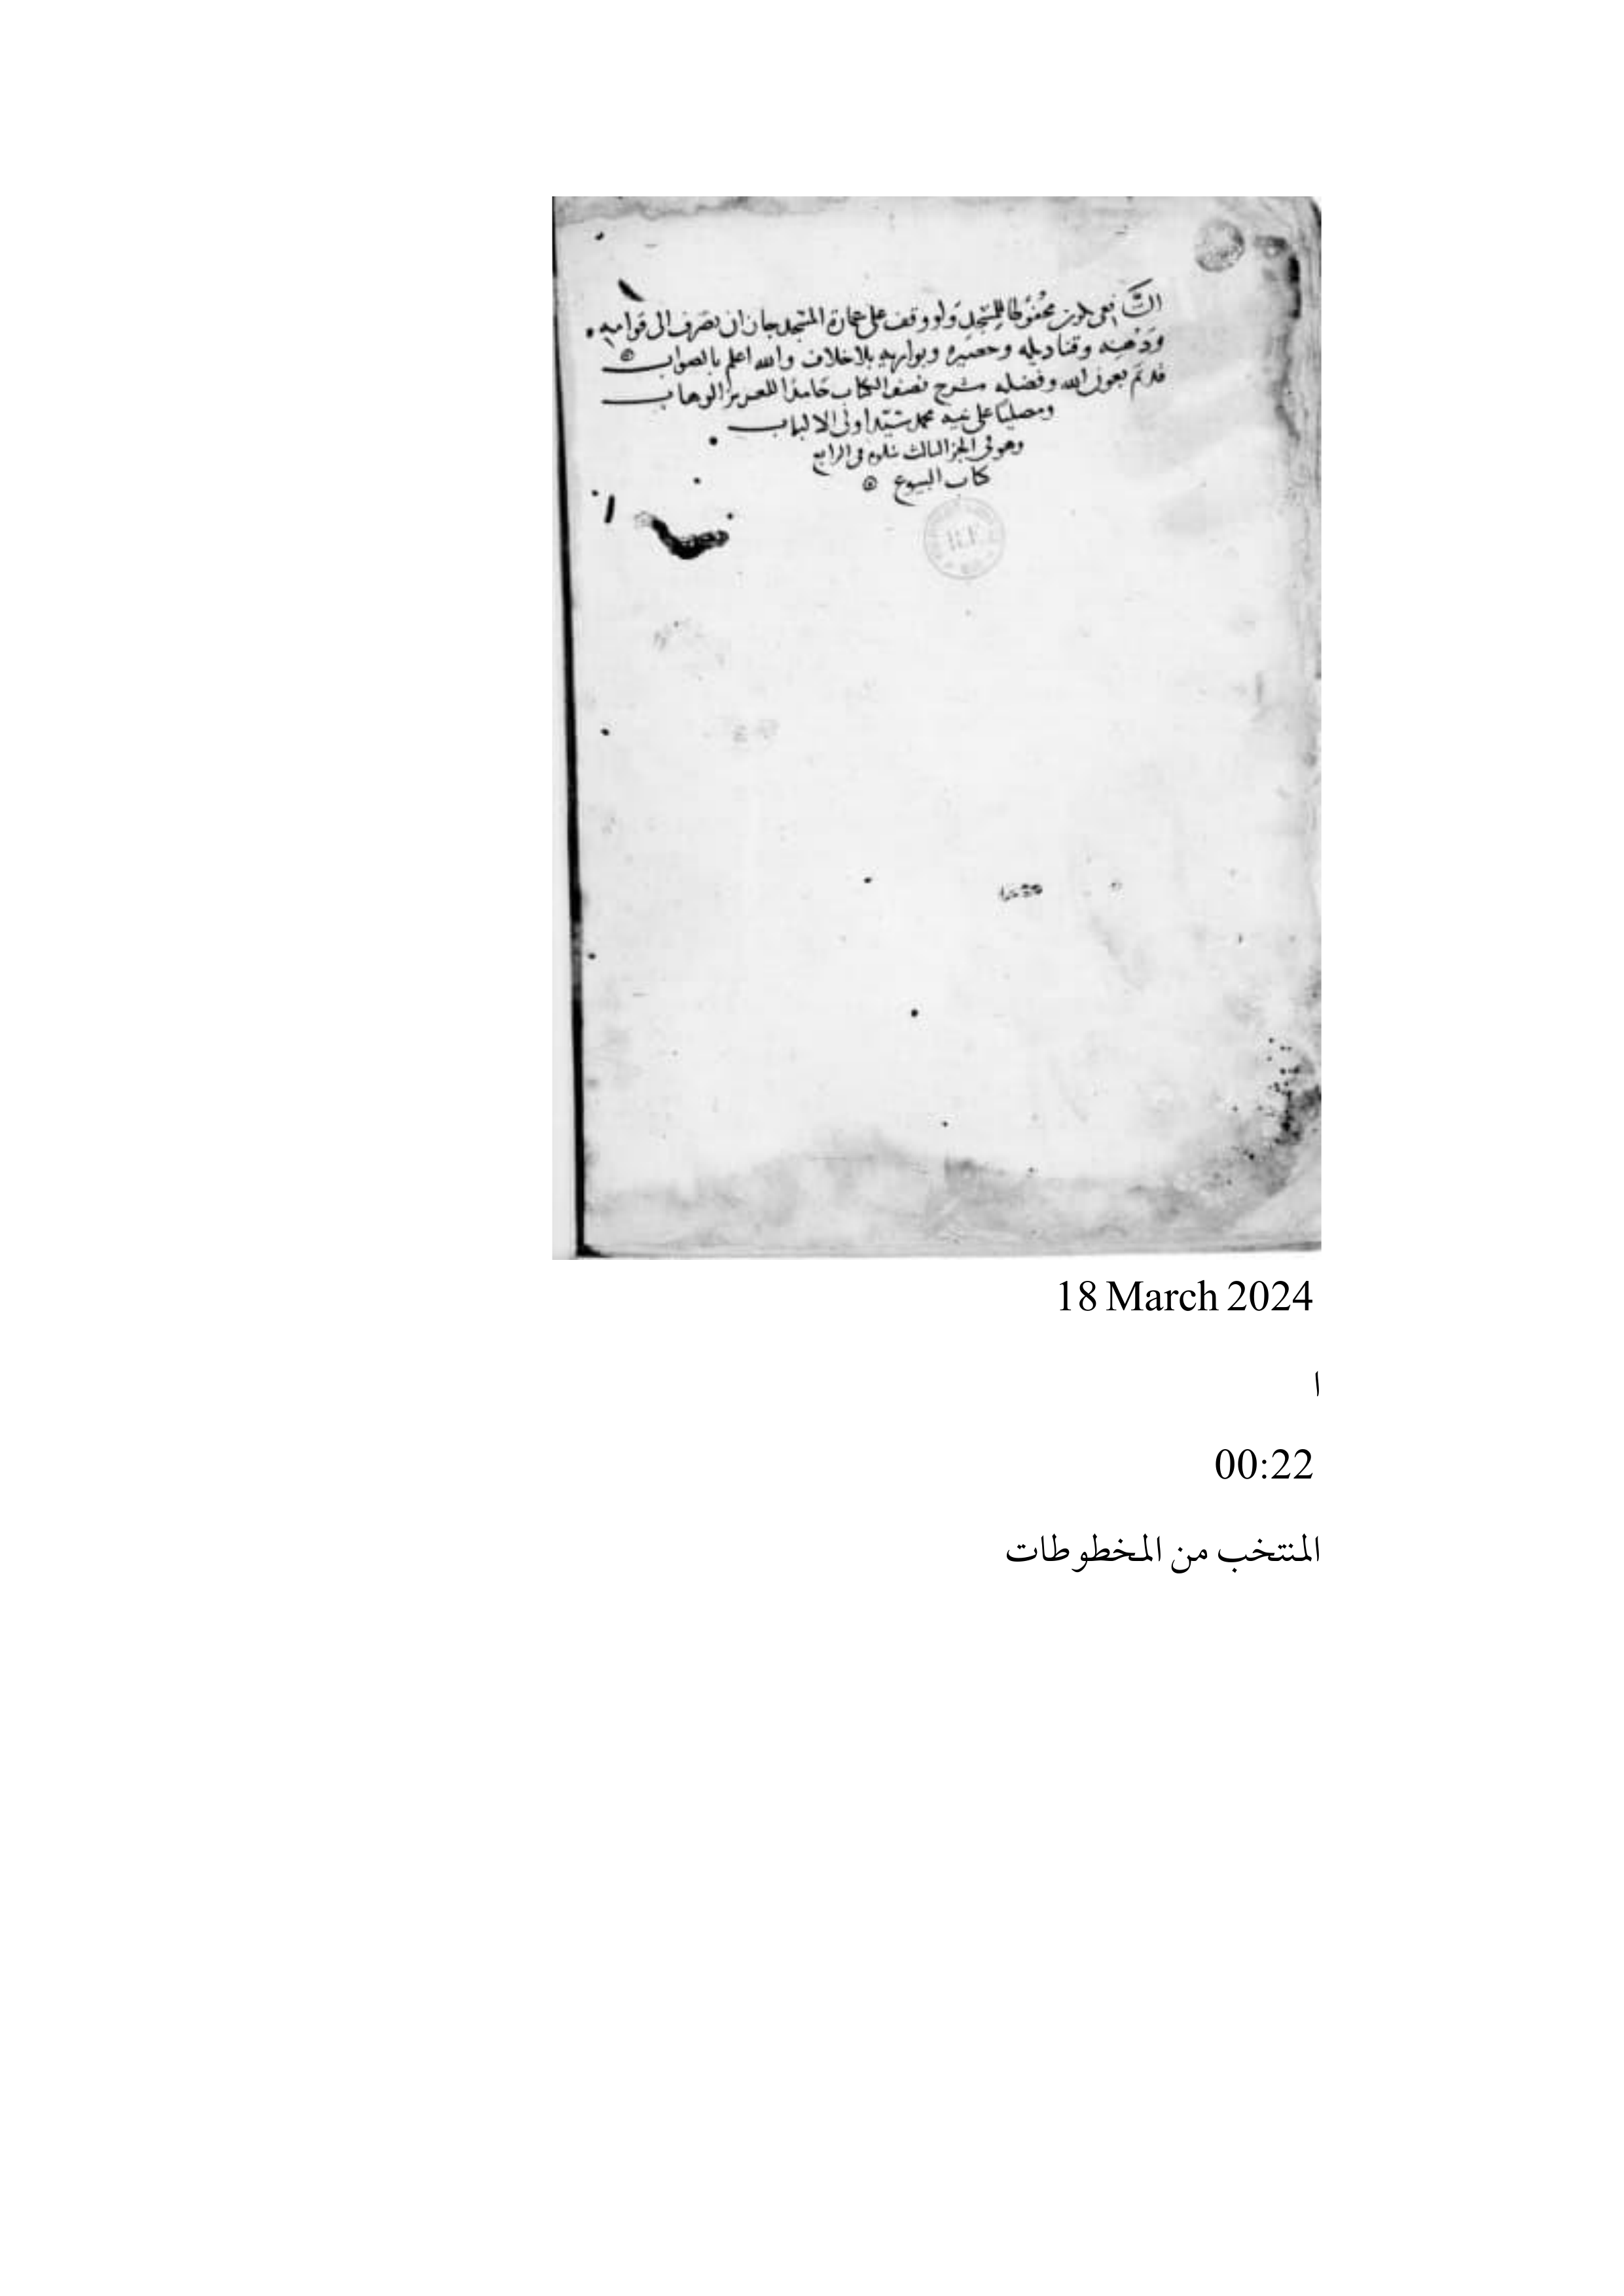 الشافعي يكون محفوظا للمسجد ولو وقف على عمارة المسجد جاز ان يصرف الى قوامه
ودهنه وقناديله وحصيره وبواريه بلا خلاف والله اعلم بالصواب
قد تم بعون الله وفضله شرح نصف الكتاب حامدا للعزيز الوهاب
ومصليا على نبيه محمد سيد اولى الالباب
وهو في الجزء الثالث يتلوه في الرابع
كتاب البيوع
18 March 2024
ا
00:22
المنتخب من المخطوطات